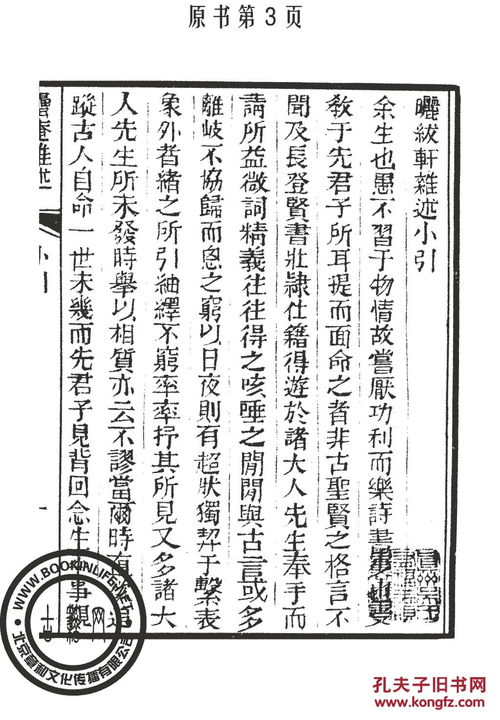 原书第3页
曬紱軒雜述小引
余生也愚不習于物情故嘗厭功利而樂詩書
敎于先君子所耳提而面命之者非古聖賢之格言不
聞及長登賢書壯隸仕籍得遊於諸大人先生奉手而
請所益微詞精義往往得之咳唾之閒閒與古言或多
離岐不協歸而思之窮以日夜則有超然獨契于繫表
象外者緒之所引紬繹不窮率率抒其所見又多諸大
人先生所未發時舉以相質亦云不謬當爾時
蹤古人自命一世未幾而先君子見背回念生事
雜述
小引
WWW.BOOKINLIFE.NET
网
北京
文化传播有限公司
孔夫子旧书网
www.kongfz.com